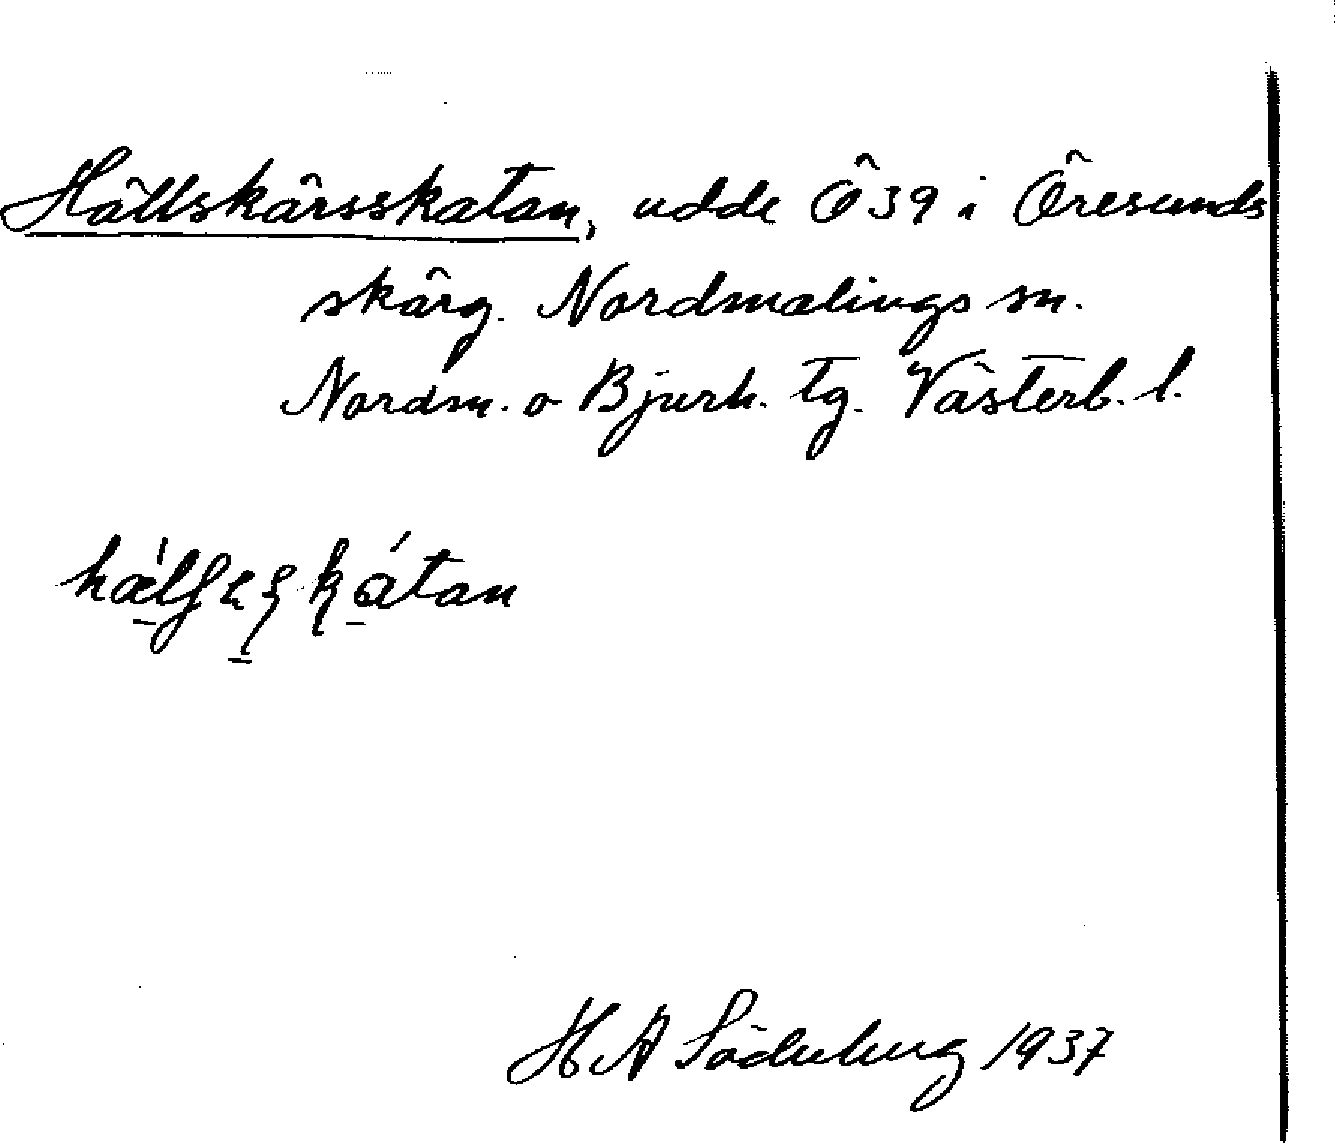 Hällskärsskatan, udde Ö39 i Öresunds
skärg. Nordmalings sn.
Nordm. o Bjurh. tg. Västerb. l.
H A Söderberg 1937